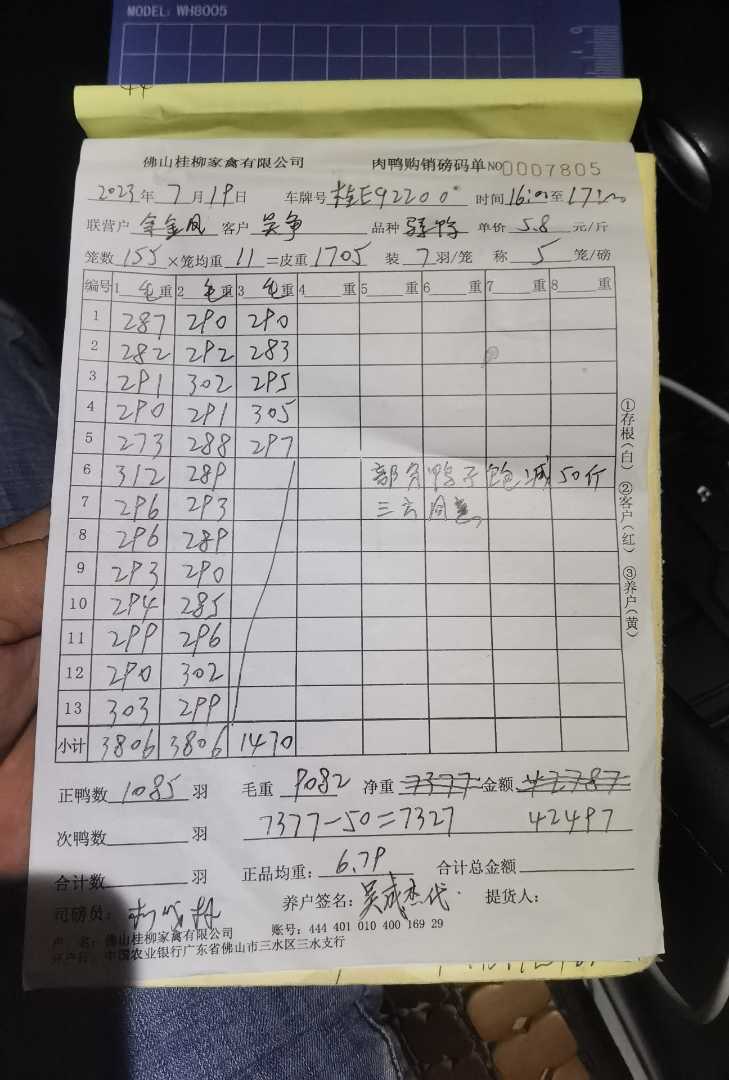 MODEL: WH8005
44
佛山桂柳家禽有限公司 肉鸭购销磅码单 NO 0007805
2023年 7月19日 车牌号 桂E92200 时间16:00至17:00
联营户 余金凤 客户 吴争 品种 单价 5.8 元/斤
笼数 155 ×笼均重 11 =皮重 1705 装 7 羽/笼 称 5 笼/磅
编号 1 毛重 2 毛重 3 毛重 4 重 5 重 6 重 7 重 8 重
1 287 290 290
2 282 292 283
3 291 302 295
4 290 291 305
5 273 288 297
6 312 289 部分鸭子饱减50斤
7 296 293 三六同意
8 296 289
9 293 290
10 294 285
11 299 296
12 290 302
13 303 299
小计 3806 3806 1470
①存根(白) ②客户(红) ③养户(黄)
正鸭数 1085 羽 毛重 9082 净重 7377 金额 42787
次鸭数 羽 7377-50=7327 42497
合计数 羽 正品均重: 6.79 合计总金额
司磅员: 养户签名: 吴成杰代 提货人:
户 名: 佛山桂柳家禽有限公司 账号: 444 401 010 400 169 29
开户行: 中国农业银行广东省佛山市三水区三水支行